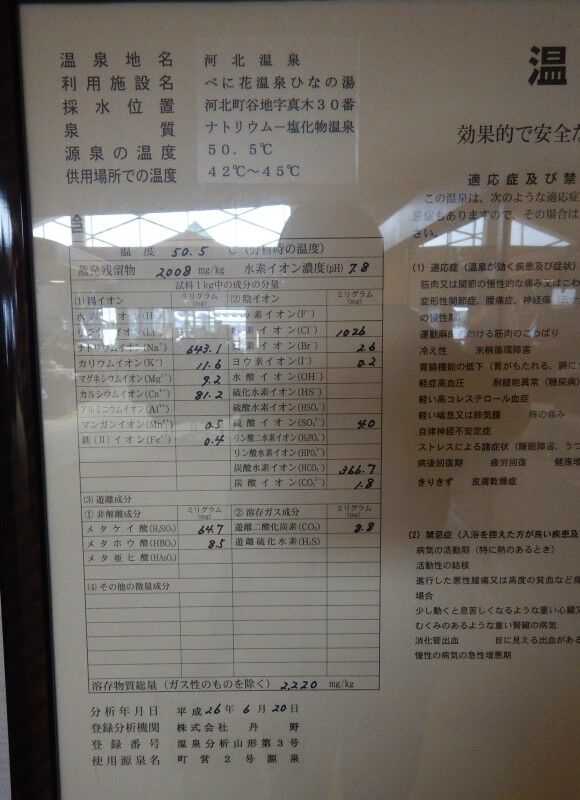 温泉地名 河北温泉
利用施設名 べに花温泉ひなの湯
採水位置 河北町谷地字真木30番
泉質 ナトリウム－塩化物温泉
源泉の温度 50．5℃
供用場所での温度 42℃〜45℃
温
効果的で安全
適応症及び禁
この温泉は、次のような適応症
忌症もありますので、その場合は
さい。
温度 50.5 ℃(分析時の温度)
蒸発残留物 2008 mg/kg 水素イオン濃度(pH) 7.8
試料1kg中の成分の分量
(1)陽イオン ミリグラム(mg) (2)陰イオン ミリグラム(mg)
水素イオン(H 素イオン(F⁻)
イオン(Li 素イオン(Cl⁻) 1026
ナトリウムイオン(Na⁺) 643.1 素イオン(Br⁻) 2.6
カリウムイオン(K⁺) 11.6 ヨウ素イオン(I⁻) 0.2
マグネシウムイオン(Mg²⁺) 9.2 水酸イオン(OH⁻)
カルシウムイオン(Ca²⁺) 81.2 硫化水素イオン(HS⁻)
アルミニウムイオン(Al³⁺) 硫酸水素イオン(HSO₄⁻)
マンガンイオン(Mn²⁺) 0.5 硫酸イオン(SO₄²⁻) 4.0
鉄(Ⅱ)イオン(Fe²⁺) 0.4 リン酸二水素イオン(H₂PO₄⁻)
リン酸水素イオン(HPO₄²⁻)
炭酸水素イオン(HCO₃⁻) 366.7
炭酸イオン(CO₃²⁻) 1.8
(3)遊離成分
①非解離成分 ミリグラム(mg) ②溶存ガス成分 ミリグラム(mg)
メタケイ酸(H₂SiO₃) 64.7 遊離二酸化炭素(CO₂) 8.8
メタホウ酸(HBO₂) 8.5 遊離硫化水素(H₂S)
メタ亜ヒ酸(HAsO₂)
(4)その他の微量成分
溶存物質総量(ガス性のものを除く) 2,220 mg/kg
分析年月日 平成26年6月20日
登録分析機関 株式会社丹野
登録番号 温泉分析山形第3号
使用源泉名 町営2号源泉
(1) 適応症（温泉が効く疾患及び症状）
筋肉又は関節の慢性的な痛み又はこわ
変形性関節症、腰痛症、神経痛
の慢性期）
運動麻 における筋肉のこわばり
冷え性 末梢循環障害
胃腸機能の低下（胃がもたれる、腸に
軽症高血圧 耐糖能異常（糖尿病
軽い高コレステロール血症
軽い喘息又は肺気腫 痔の痛み
自律神経不安定症
ストレスによる諸症状（睡眠障害、うつ
病後回復期 疲労回復 健康増
きりきず 皮膚乾燥症
(2) 禁忌症（入浴を控えた方が良い疾患及
病気の活動期（特に熱のあるとき）
活動性の結核
進行した悪性腫瘍又は高度の貧血など身
場合
少し動くと息苦しくなるような重い心臓又
むくみのあるような重い腎臓の病気
消化管出血 目に見える出血がある
慢性の病気の急性増悪期